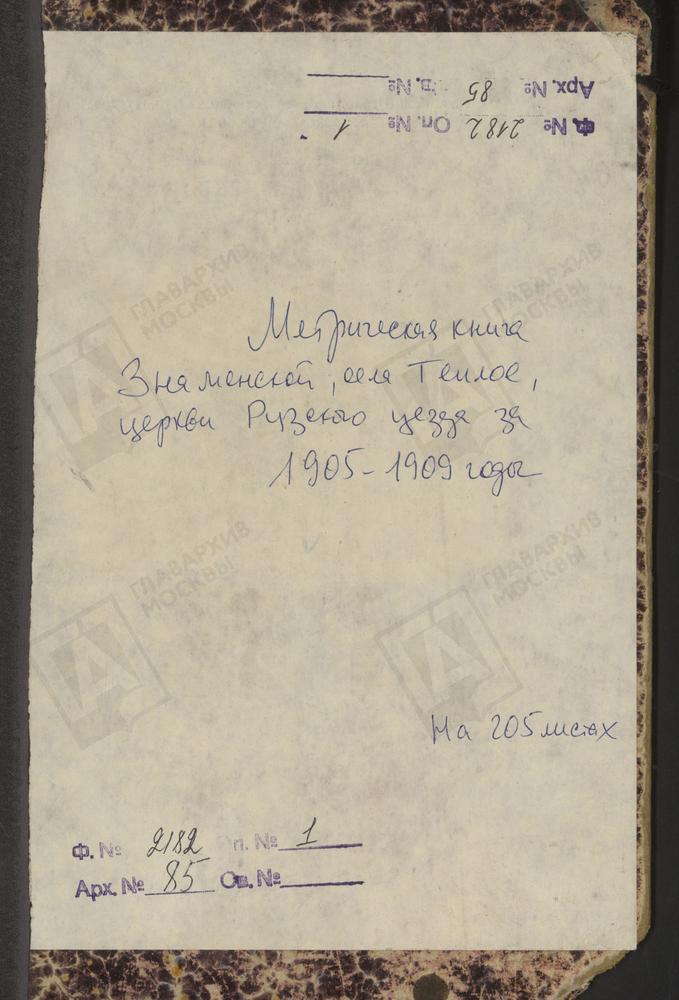 Арх. № 85 Св. №
Ф. № 2182 Оп. № 1
Метрическая книга
Знаменской, села Теплое,
церкви Рузского уезда за
1905-1909 годы
На 205 листах
Ф. № 2182 Оп. № 1
Арх. № 85 Св. №
ГЛАВАРХИВ
МОСКВЫ
ГЛАВАРХИВ
МОСКВЫ
ГЛАВАРХИВ
МОСКВЫ
ГЛАВАРХИВ
МОСКВЫ